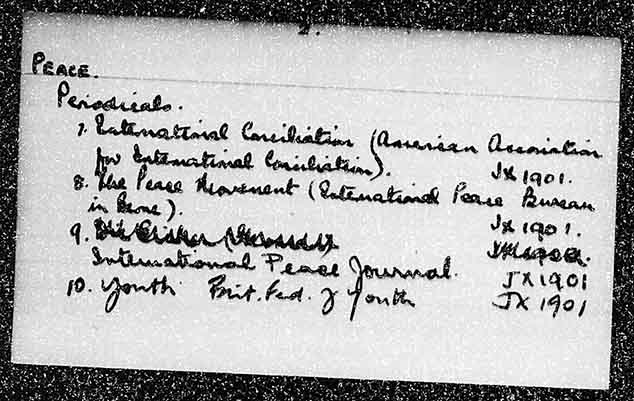 2.
PEACE.
Periodicals.
7. International Conciliation (American Association
for International Conciliation). JX 1901.
8. The Peace Movement (International Peace Bureau
in Berne). JX 1901.
9.
International Peace Journal. JX 1901
10. Youth Brit. Fed. of Youth JX 1901